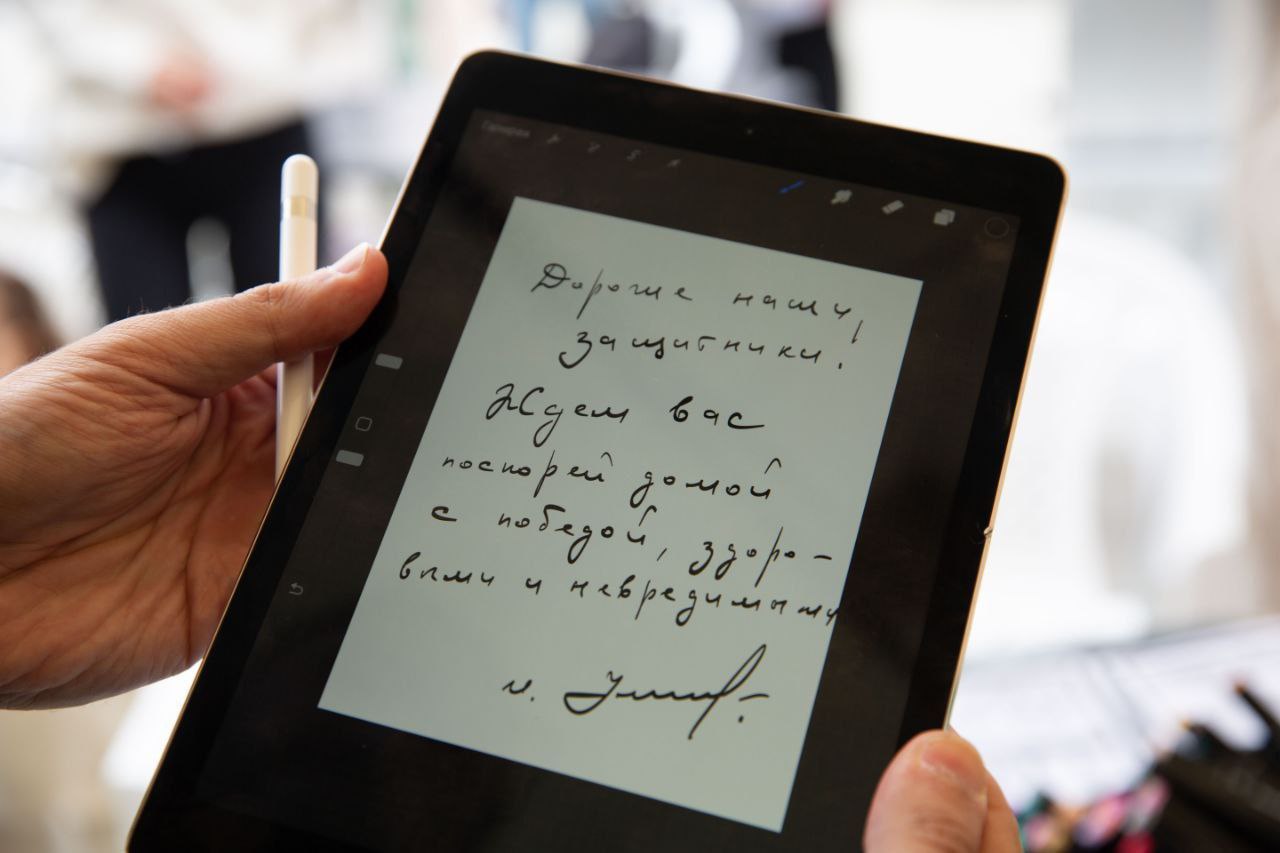 Галерея
Дорогие наши,
защитники!
Ждем вас
поскорей домой
с победой, здоро-
выми и невредимыми